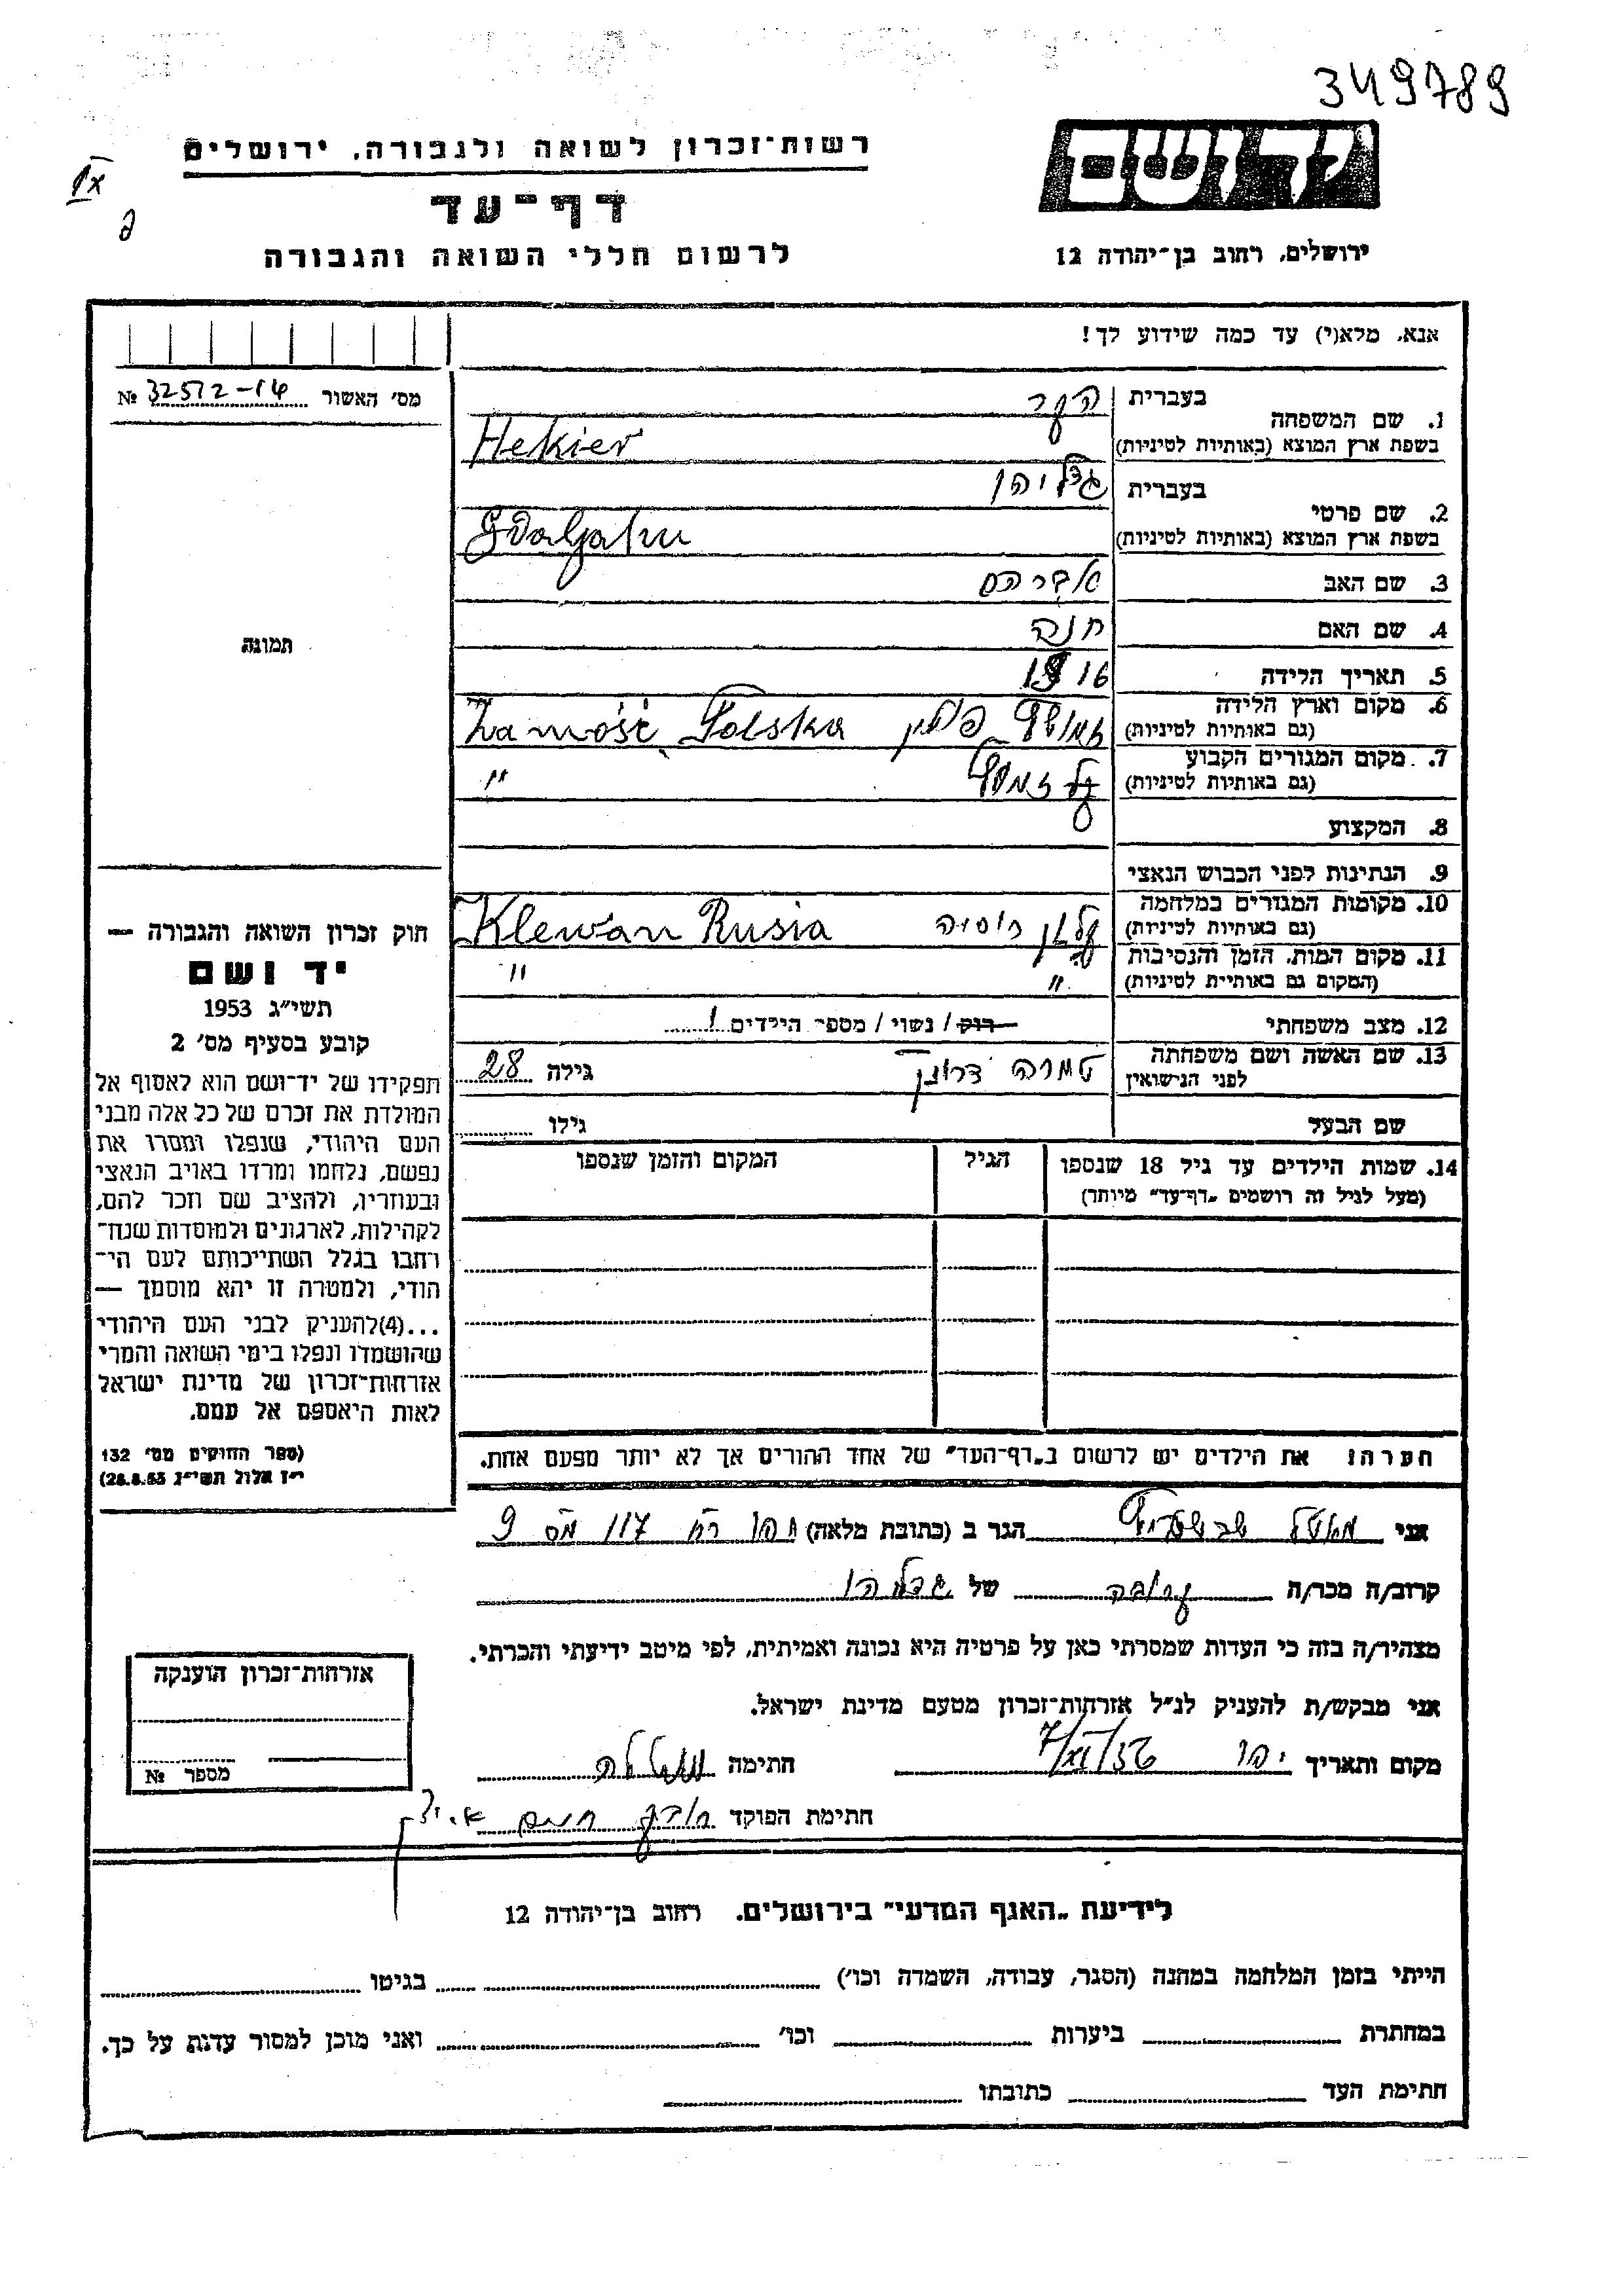 349789
רשות־זכרון לשואה ולגבורה, ירושלים
דף־עד
לרשום חללי השואה והגבורה
ידושם
ירושלים, רחוב בן־יהודה 12
אנא, מלא(י) עד כמה שידוע לך!
מס׳ האשור 32512-14 №
1. שם המשפחה
בעברית הקר
בשפת ארץ המוצא (באותיות לטיניות) Hekier
2. שם פרטי
בעברית גדליהו
בשפת ארץ המוצא (באותיות לטיניות) Gdaljahu
3. שם האב אברהם
4. שם האם חנה
5. תאריך הלידה 1916
6. מקום וארץ הלידה
(גם באותיות לטיניות) פולין Zamość, Polska
7. מקום המגורים הקבוע
(גם באותיות לטיניות) "
8. המקצוע
9. הנתינות לפני הכבוש הנאצי
10. מקומות המגורים במלחמה
(גם באותיות לטיניות) קלבן רוסיה Klewan Rusia
11. מקום המות, הזמן והנסיבות
(המקום גם באותיית לטיניות) " "
12. מצב משפחתי רוק / נשוי / מספר הילדים 1
13. שם האשה ושם משפחתה
לפני הנישואין טמרה גילה 28
שם הבעל גילו
14. שמות הילדים עד גיל 18 שנספו
(מעל לגיל זה רושמים „דף־עד״ מיוחד)
הגיל
המקום והזמן שנספו
הערה: את הילדים יש לרשום ב„דף־העד״ של אחד ההורים אך לא יותר מפעם אחת.
תמונה
חוק זכרון השואה והגבורה —
יד ושם
תשי״ג 1953
קובע בסעיף מס׳ 2
תפקידו של יד־ושם הוא לאסוף אל
המולדת את זכרם של כל אלה מבני
העם היהודי, שנפלו ומסרו את
נפשם, נלחמו ומרדו באויב הנאצי
ובעוזריו, ולהציב שם וזכר להם,
לקהילות, לארגונים ולמוסדות שנח־
רחבו בגלל השתייכותם לעם הי־
הודי, ולמטרה זו יהא מוסמך —
...(4)להעניק לבני העם היהודי
שהושמדו ונפלו בימי השואה והמרי
אזרחות־זכרון של מדינת ישראל
לאות היאספם אל עמם.
(ספר החוקים מס׳ 132
י״ז אלול תשי״ג 28.8.53)
אני הגר ב (כתובת מלאה) יפו רח 117 מס 9
קרוב/ה מכר/ה קרובה של גדליהו
מצהיר/ה בזה כי העדות שמסרתי כאן על פרטיה היא נכונה ואמיתית, לפי מיטב ידיעתי והכרתי.
אני מבקש/ת להעניק לנ״ל אזרחות־זכרון מטעם מדינת ישראל.
מקום ותאריך יפו חתימה
חתימת הפוקד
אזרחות־זכרון הוענקה
מספר №
לידיעת „האגף המדעי״ בירושלים, רחוב בן־יהודה 12
הייתי בזמן המלחמה במחנה (הסגר, עבודה, השמדה וכו׳) בגיטו
במחתרת ביערות וכו׳ ואני מוכן למסור עדות על כך.
חתימת העד כתובתו